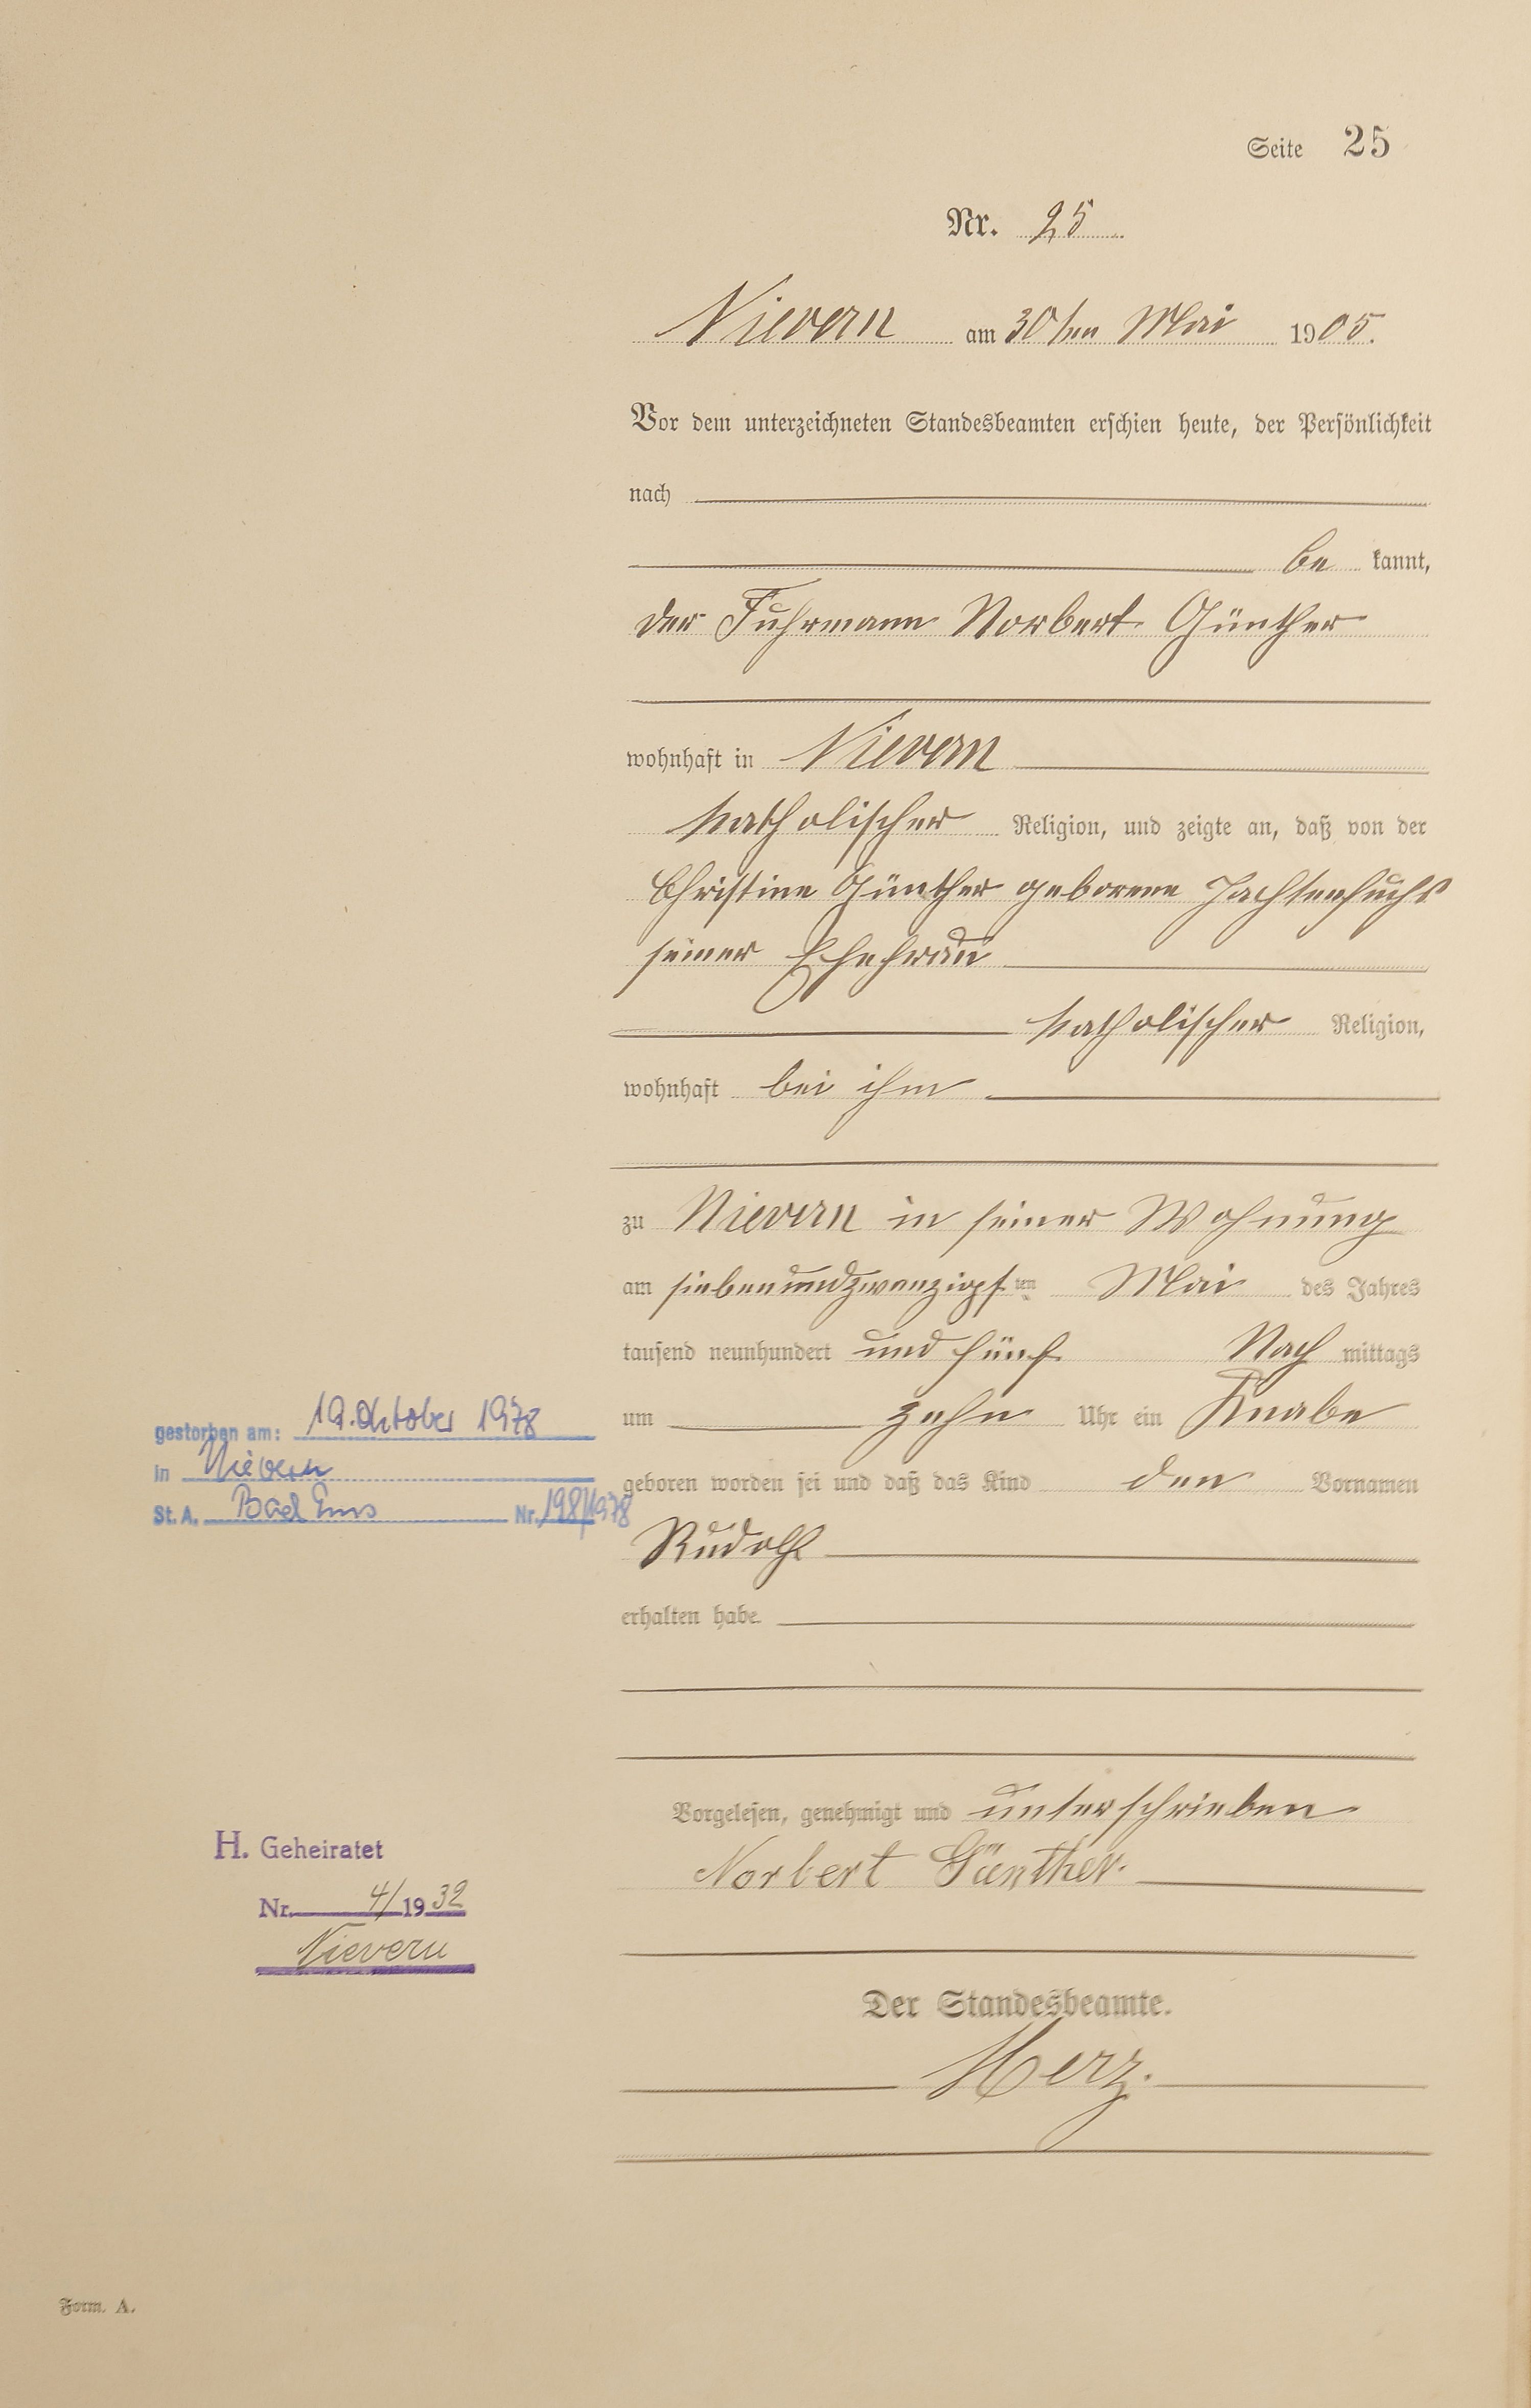 Seite 25
Nr. 25
Nievern am 30ten Mai 1905.
Vor dem unterzeichneten Standesbeamten erschien heute, der Persönlichkeit
nach
be kannt,
der Fuhrmann Norbert Günther
wohnhaft in Nievern
katholischer Religion, und zeigte an, daß von der
Christine Günther geborene
seiner Ehefrau
katholischer Religion,
wohnhaft bei ihm
zu Nievern in seiner Wohnung
am siebenundzwanzigsten Mai des Jahres
tausend neunhundert und fünf Nach mittags
um zehn Uhr ein Knabe
geboren worden sei und daß das Kind den Vornamen
Rudolf
erhalten habe.
Vorgelesen, genehmigt und unterschrieben
Norbert Günther.
Der Standesbeamte.
Herz.
gestorben am: 19. Oktober 1978
in Nievern
St. A. Bad Ems Nr. 198/1978
H. Geheiratet
Nr. 4/1932
Nievern
Form. A.